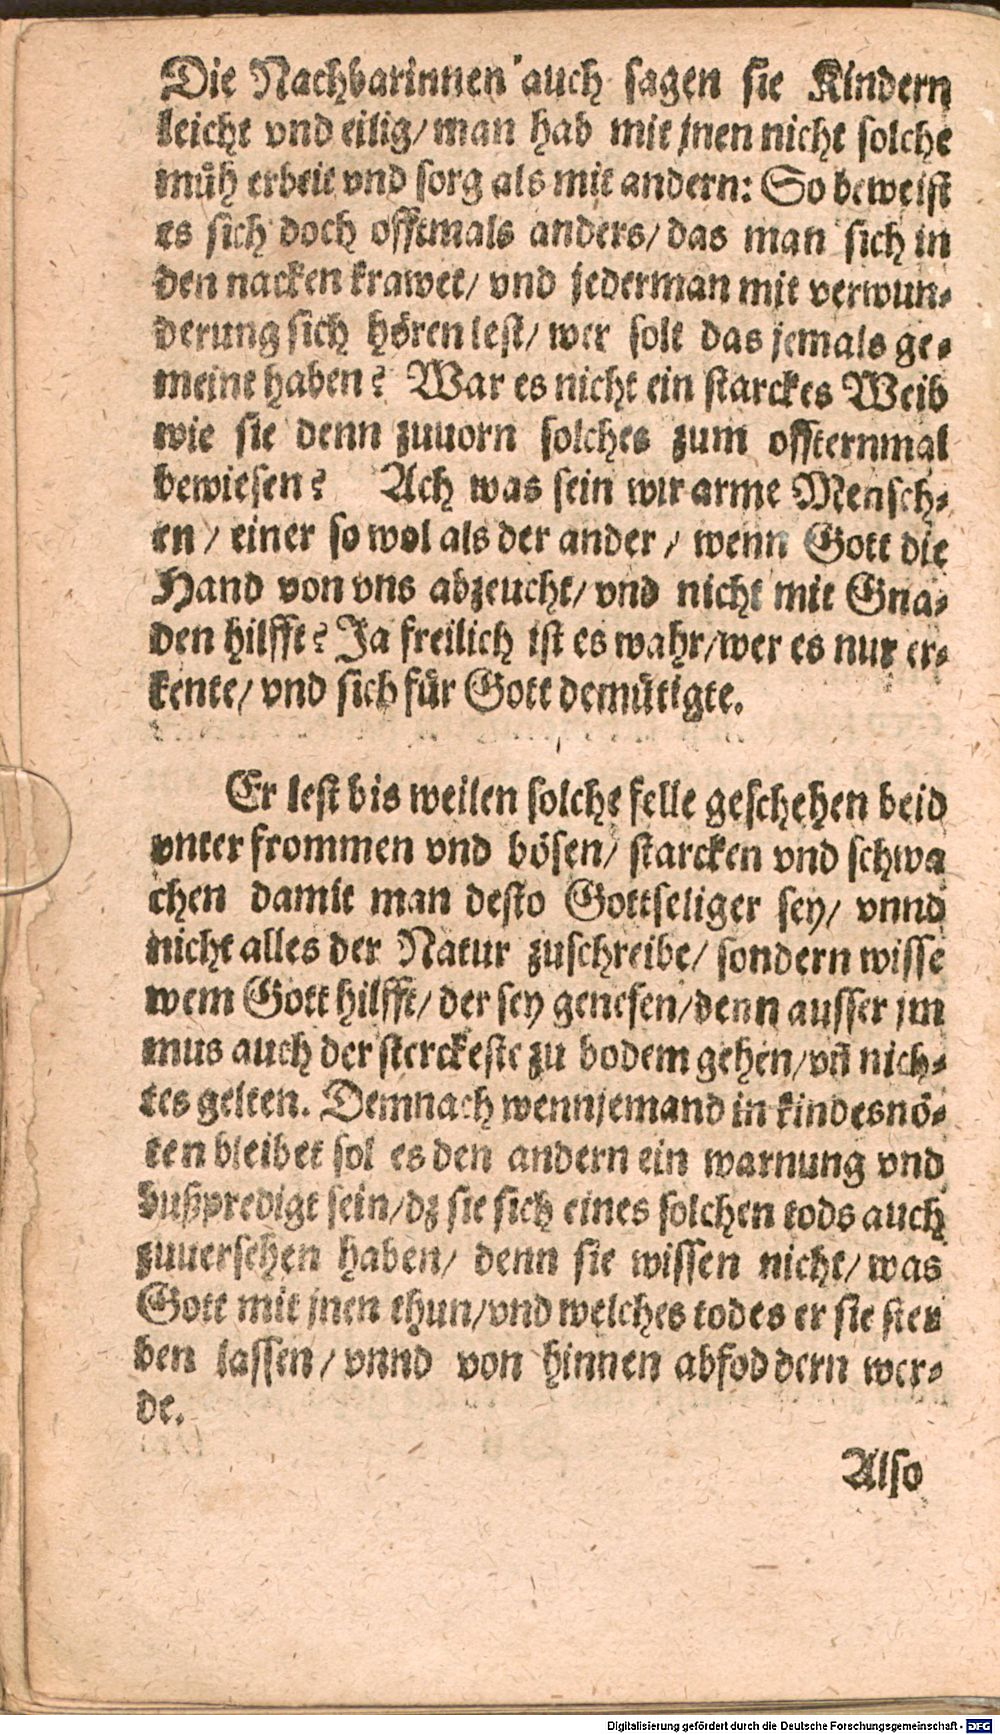 Die Nachbarinnen auch sagen sie Kindern
leicht vnd eilig/ man hab mit jnen nicht solche
müh erbeit vnd sorg als mit andern: So beweist
es sich doch offtmals anders/ das man sich in
den nacken krawet/ vnd jederman mit verwun-
derung sich hören lest/ wer solt das jemals ge-
meint haben? War es nicht ein starckes Weib
wie sie denn zuuorn solches zum offternmal
bewiesen? Ach was sein wir arme Mensch-
en / einer so wol als der ander / wenn Gott die
Hand von vns abzeucht/ vnd nicht mit Gna-
den hilfft? Ja freilich ist es wahr/ wer es nur er-
kente/ vnd sich für Gott demütigte.
Er lest bis weilen solche felle geschehen beid
vnter frommen vnd bösen/ starcken vnd schwa
chen damit man desto Gottseliger sey/ vnnd
nicht alles der Natur zuschreibe/ sondern wisse
wem Gott hilfft/ der sey genesen/ denn ausser jm
mus auch der sterckeste zu bodem gehen/ vñ nich-
tes gelten. Demnach wenn jemand in kindesnö-
ten bleibet sol es den andern ein warnung vnd
bußpredigt sein/ dz sie sich eines solchen tods auch
zuuersehen haben/ denn sie wissen nicht/ was
Gott mit jnen thun/ vnd welches todes er sie ster
ben lassen/ vnnd von hinnen abfoddern wer-
de.
Also
Digitalisierung gefördert durch die Deutsche Forschungsgemeinschaft - DFG